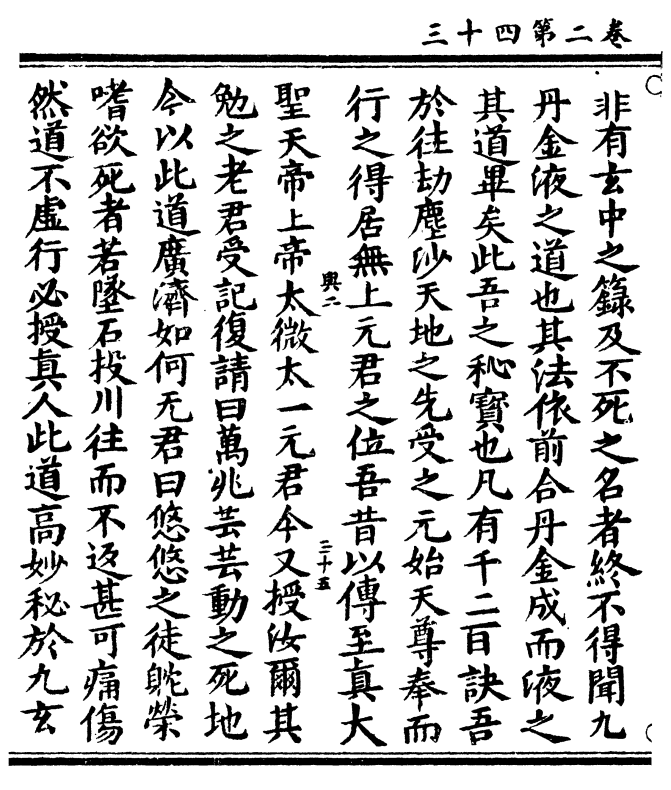 卷二第四十三
非有玄中之籙及不死之名者終不得聞九
丹金液之道也其法依前合丹金成而液之
其道畢矣此吾之秘寶也凡有千二百訣吾
於往劫塵沙天地之先受之元始天尊奉而
行之得居無上元君之位吾昔以傳至真大
輿二
三十五
聖天帝上帝太微太一元君今又授汝爾其
勉之老君受記復請曰萬兆芸芸動之死地
今以此道廣濟如何元君曰悠悠之徒躭榮
嗜欲死者若墜石投川往而不返甚可痛傷
然道不虛行必授真人此道高妙秘於九玄